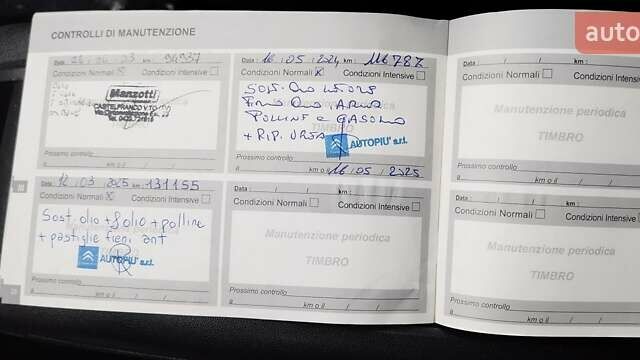 CONTROLLI DI MANUTENZIONE
auto
Data: 03 km: 94937
Condizioni Normali Condizioni Intensive
Manzotti
CASTELFRANCO V.TO
TIMBRO
Prossimo controllo
Il / / km o il / /
Data: 16 / 05 / 2024 km: 116787
Condizioni Normali X Condizioni Intensive
SOST. OLIO
FILTRO OLIO ARIA
POLLINE e GASOLIO
+ RIP.
AUTOPIU' s.r.l.
Il km o il 16 / 05 / 2025
Data: 12 / 03 2025 km: 131155
Condizioni Normali X Condizioni Intensive
Sost. olio + f.olio + polline
+ pastiglie freni ant
AUTOPIU' s.r.l.
Prossimo controllo
Il / / km o il / /
Data: / / km:
Condizioni Normali Condizioni Intensive
Manutenzione periodica
TIMBRO
Prossimo controllo
Il / / km o il / /
Data: / / km:
Condizioni Normali
Manutenzione periodica
TIMBRO
Prossimo controllo
Il / / km o il / /
Data: / / km:
Condizioni Normali Condizioni Intensive
Manutenzione periodica
TIMBRO
Prossimo controllo
Il / / km o il / /